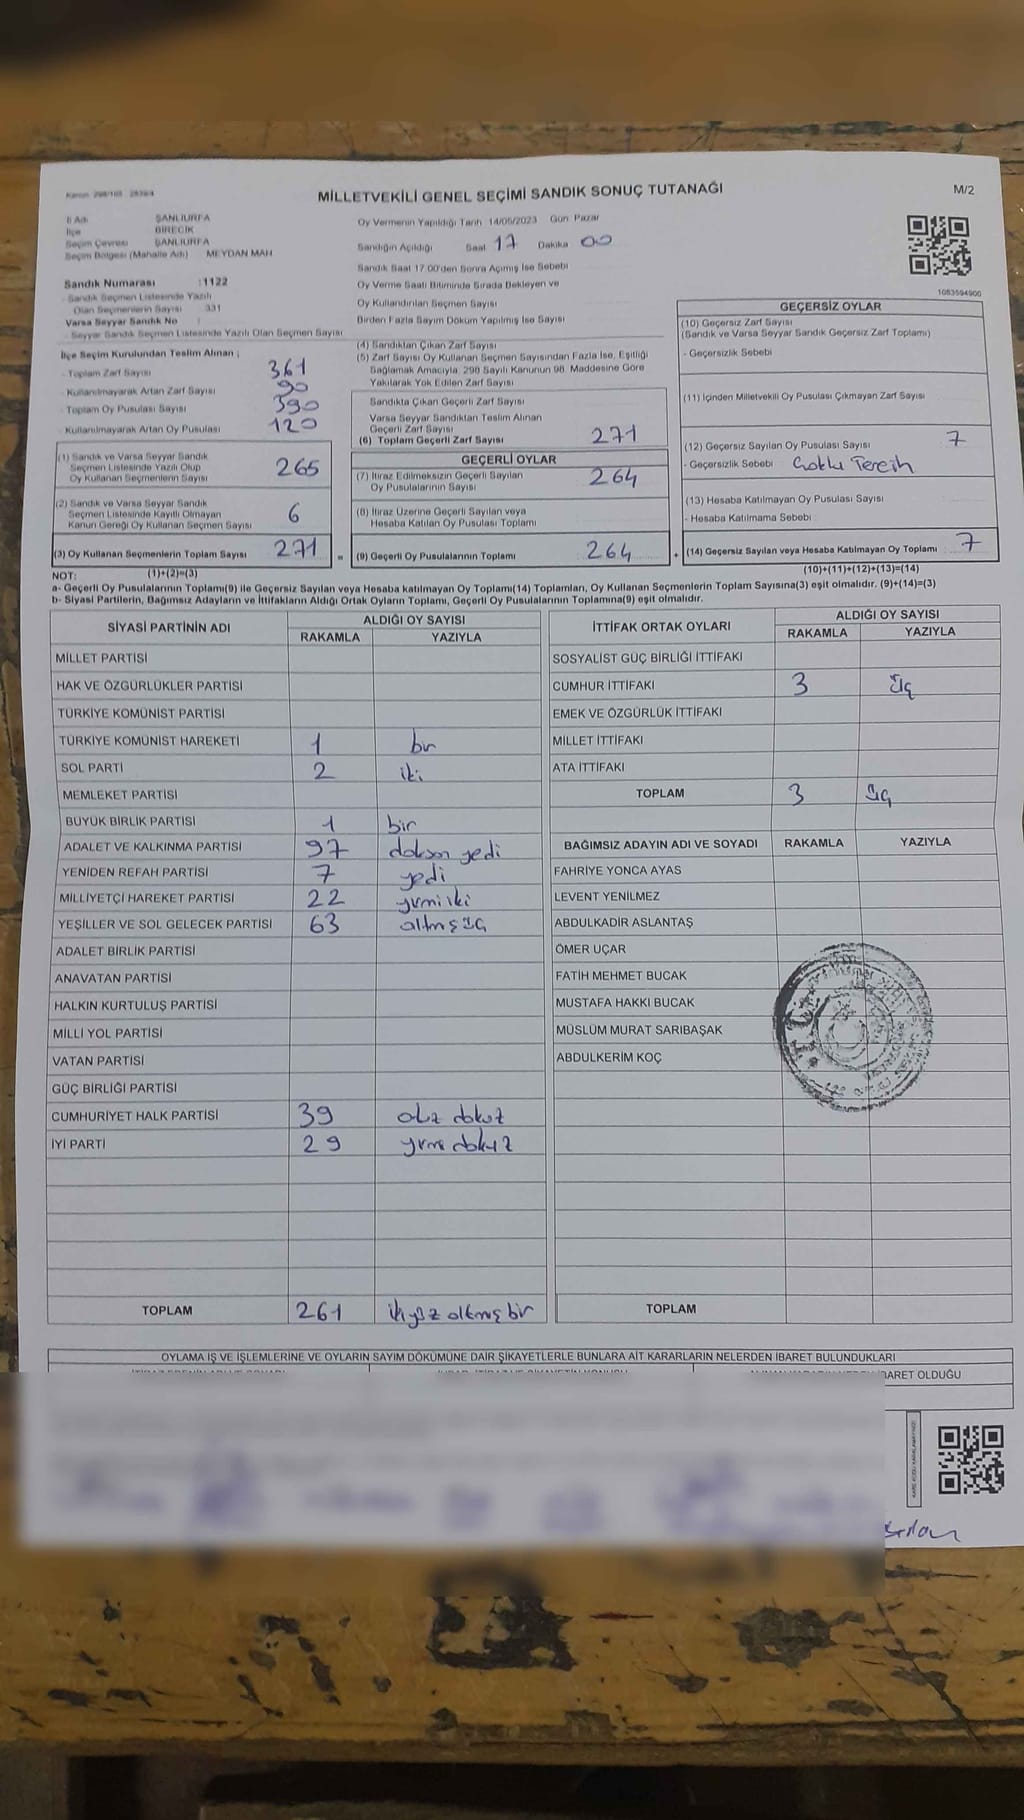 Kanun 298/105 2839/4
MİLLETVEKİLİ GENEL SEÇİMİ SANDIK SONUÇ TUTANAĞI
M/2
İl Adı ŞANLIURFA
İlçe BİRECİK
Seçim Çevresi ŞANLIURFA
Seçim Bölgesi (Mahalle Adı) MEYDAN MAH
Sandık Numarası :1122
- Sandık Seçmen Listesinde Yazılı
Olan Seçmenlerin Sayısı 331
Varsa Seyyar Sandık No :
- Seyyar Sandık Seçmen Listesinde Yazılı Olan Seçmen Sayısı
Oy Vermenin Yapıldığı Tarih 14/05/2023 Gün Pazar
Sandığın Açıldığı Saat 17 Dakika 00
Sandık Saat 17:00'den Sonra Açılmış İse Sebebi
Oy Verme Saati Bitiminde Sırada Bekleyen ve
Oy Kullandırılan Seçmen Sayısı
Birden Fazla Sayım Döküm Yapılmış İse Sayısı
1083594900
İlçe Seçim Kurulundan Teslim Alınan ;
- Toplam Zarf Sayısı 361
- Kullanılmayarak Artan Zarf Sayısı 90
- Toplam Oy Pusulası Sayısı 390
- Kullanılmayarak Artan Oy Pusulası 120
(1) Sandık ve Varsa Seyyar Sandık
Seçmen Listesinde Yazılı Olup
Oy Kullanan Seçmenlerin Sayısı 265
(2) Sandık ve Varsa Seyyar Sandık
Seçmen Listesinde Kayıtlı Olmayan
Kanun Gereği Oy Kullanan Seçmen Sayısı 6
(3) Oy Kullanan Seçmenlerin Toplam Sayısı 271 =
(1)+(2)=(3)
(4) Sandıktan Çıkan Zarf Sayısı
(5) Zarf Sayısı Oy Kullanan Seçmen Sayısından Fazla İse, Eşitliği
Sağlamak Amacıyla; 298 Sayılı Kanunun 98. Maddesine Göre
Yakılarak Yok Edilen Zarf Sayısı
Sandıkta Çıkan Geçerli Zarf Sayısı
Varsa Seyyar Sandıktan Teslim Alınan
Geçerli Zarf Sayısı
(6) Toplam Geçerli Zarf Sayısı 271
GEÇERLİ OYLAR
(7) İtiraz Edilmeksizin Geçerli Sayılan
Oy Pusulalarının Sayısı 264
(8) İtiraz Üzerine Geçerli Sayılan veya
Hesaba Katılan Oy Pusulası Toplamı
(9) Geçerli Oy Pusulalarının Toplamı 264 +
GEÇERSİZ OYLAR
(10) Geçersiz Zarf Sayısı
(Sandık ve Varsa Seyyar Sandık Geçersiz Zarf Toplamı)
- Geçersizlik Sebebi
(11) İçinden Milletvekili Oy Pusulası Çıkmayan Zarf Sayısı
(12) Geçersiz Sayılan Oy Pusulası Sayısı 7
- Geçersizlik Sebebi Çoklu Tercih
(13) Hesaba Katılmayan Oy Pusulası Sayısı
- Hesaba Katılmama Sebebi
(14) Geçersiz Sayılan veya Hesaba Katılmayan Oy Toplamı 7
(10)+(11)+(12)+(13)=(14)
NOT:
a- Geçerli Oy Pusulalarının Toplamı(9) ile Geçersiz Sayılan veya Hesaba katılmayan Oy Toplamı(14) Toplamları, Oy Kullanan Seçmenlerin Toplam Sayısına(3) eşit olmalıdır. (9)+(14)=(3)
b- Siyasi Partilerin, Bağımsız Adayların ve İttifakların Aldığı Ortak Oyların Toplamı, Geçerli Oy Pusulalarının Toplamına(9) eşit olmalıdır.
SİYASİ PARTİNİN ADI ALDIĞI OY SAYISI
RAKAMLA YAZIYLA
MİLLET PARTİSİ
HAK VE ÖZGÜRLÜKLER PARTİSİ
TÜRKİYE KOMÜNİST PARTİSİ
TÜRKİYE KOMÜNİST HAREKETİ 1 bir
SOL PARTİ 2 iki
MEMLEKET PARTİSİ
BÜYÜK BİRLİK PARTİSİ 1 bir
ADALET VE KALKINMA PARTİSİ 97 doksan yedi
YENİDEN REFAH PARTİSİ 7 yedi
MİLLİYETÇİ HAREKET PARTİSİ 22 yirmi iki
YEŞİLLER VE SOL GELECEK PARTİSİ 63 altmış üç
ADALET BİRLİK PARTİSİ
ANAVATAN PARTİSİ
HALKIN KURTULUŞ PARTİSİ
MİLLİ YOL PARTİSİ
VATAN PARTİSİ
GÜÇ BİRLİĞİ PARTİSİ
CUMHURİYET HALK PARTİSİ 39 otuz dokuz
İYİ PARTİ 29 yirmi dokuz
TOPLAM 261 iki yüz altmış bir
İTTİFAK ORTAK OYLARI ALDIĞI OY SAYISI
RAKAMLA YAZIYLA
SOSYALİST GÜÇ BİRLİĞİ İTTİFAKI
CUMHUR İTTİFAKI 3 üç
EMEK VE ÖZGÜRLÜK İTTİFAKI
MİLLET İTTİFAKI
ATA İTTİFAKI
TOPLAM 3 üç
BAĞIMSIZ ADAYIN ADI VE SOYADI RAKAMLA YAZIYLA
FAHRİYE YONCA AYAS
LEVENT YENİLMEZ
ABDULKADİR ASLANTAŞ
ÖMER UÇAR
FATİH MEHMET BUCAK
MUSTAFA HAKKI BUCAK
MÜSLÜM MURAT SARIBAŞAK
ABDULKERİM KOÇ
TOPLAM
OYLAMA İŞ VE İŞLEMLERİNE VE OYLARIN SAYIM DÖKÜMÜNE DAİR ŞİKAYETLERLE BUNLARA AİT KARARLARIN NELERDEN İBARET BULUNDUKLARI
BARET OLDUĞU